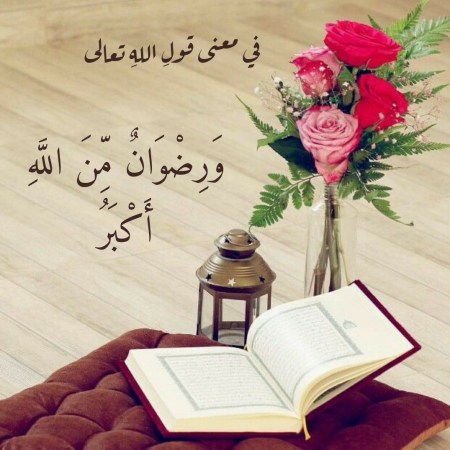 في معنى قولِ اللهِ تعالى
وَرِضْوَانٌ مِّنَ اللَّهِ
أَكْبَرُ